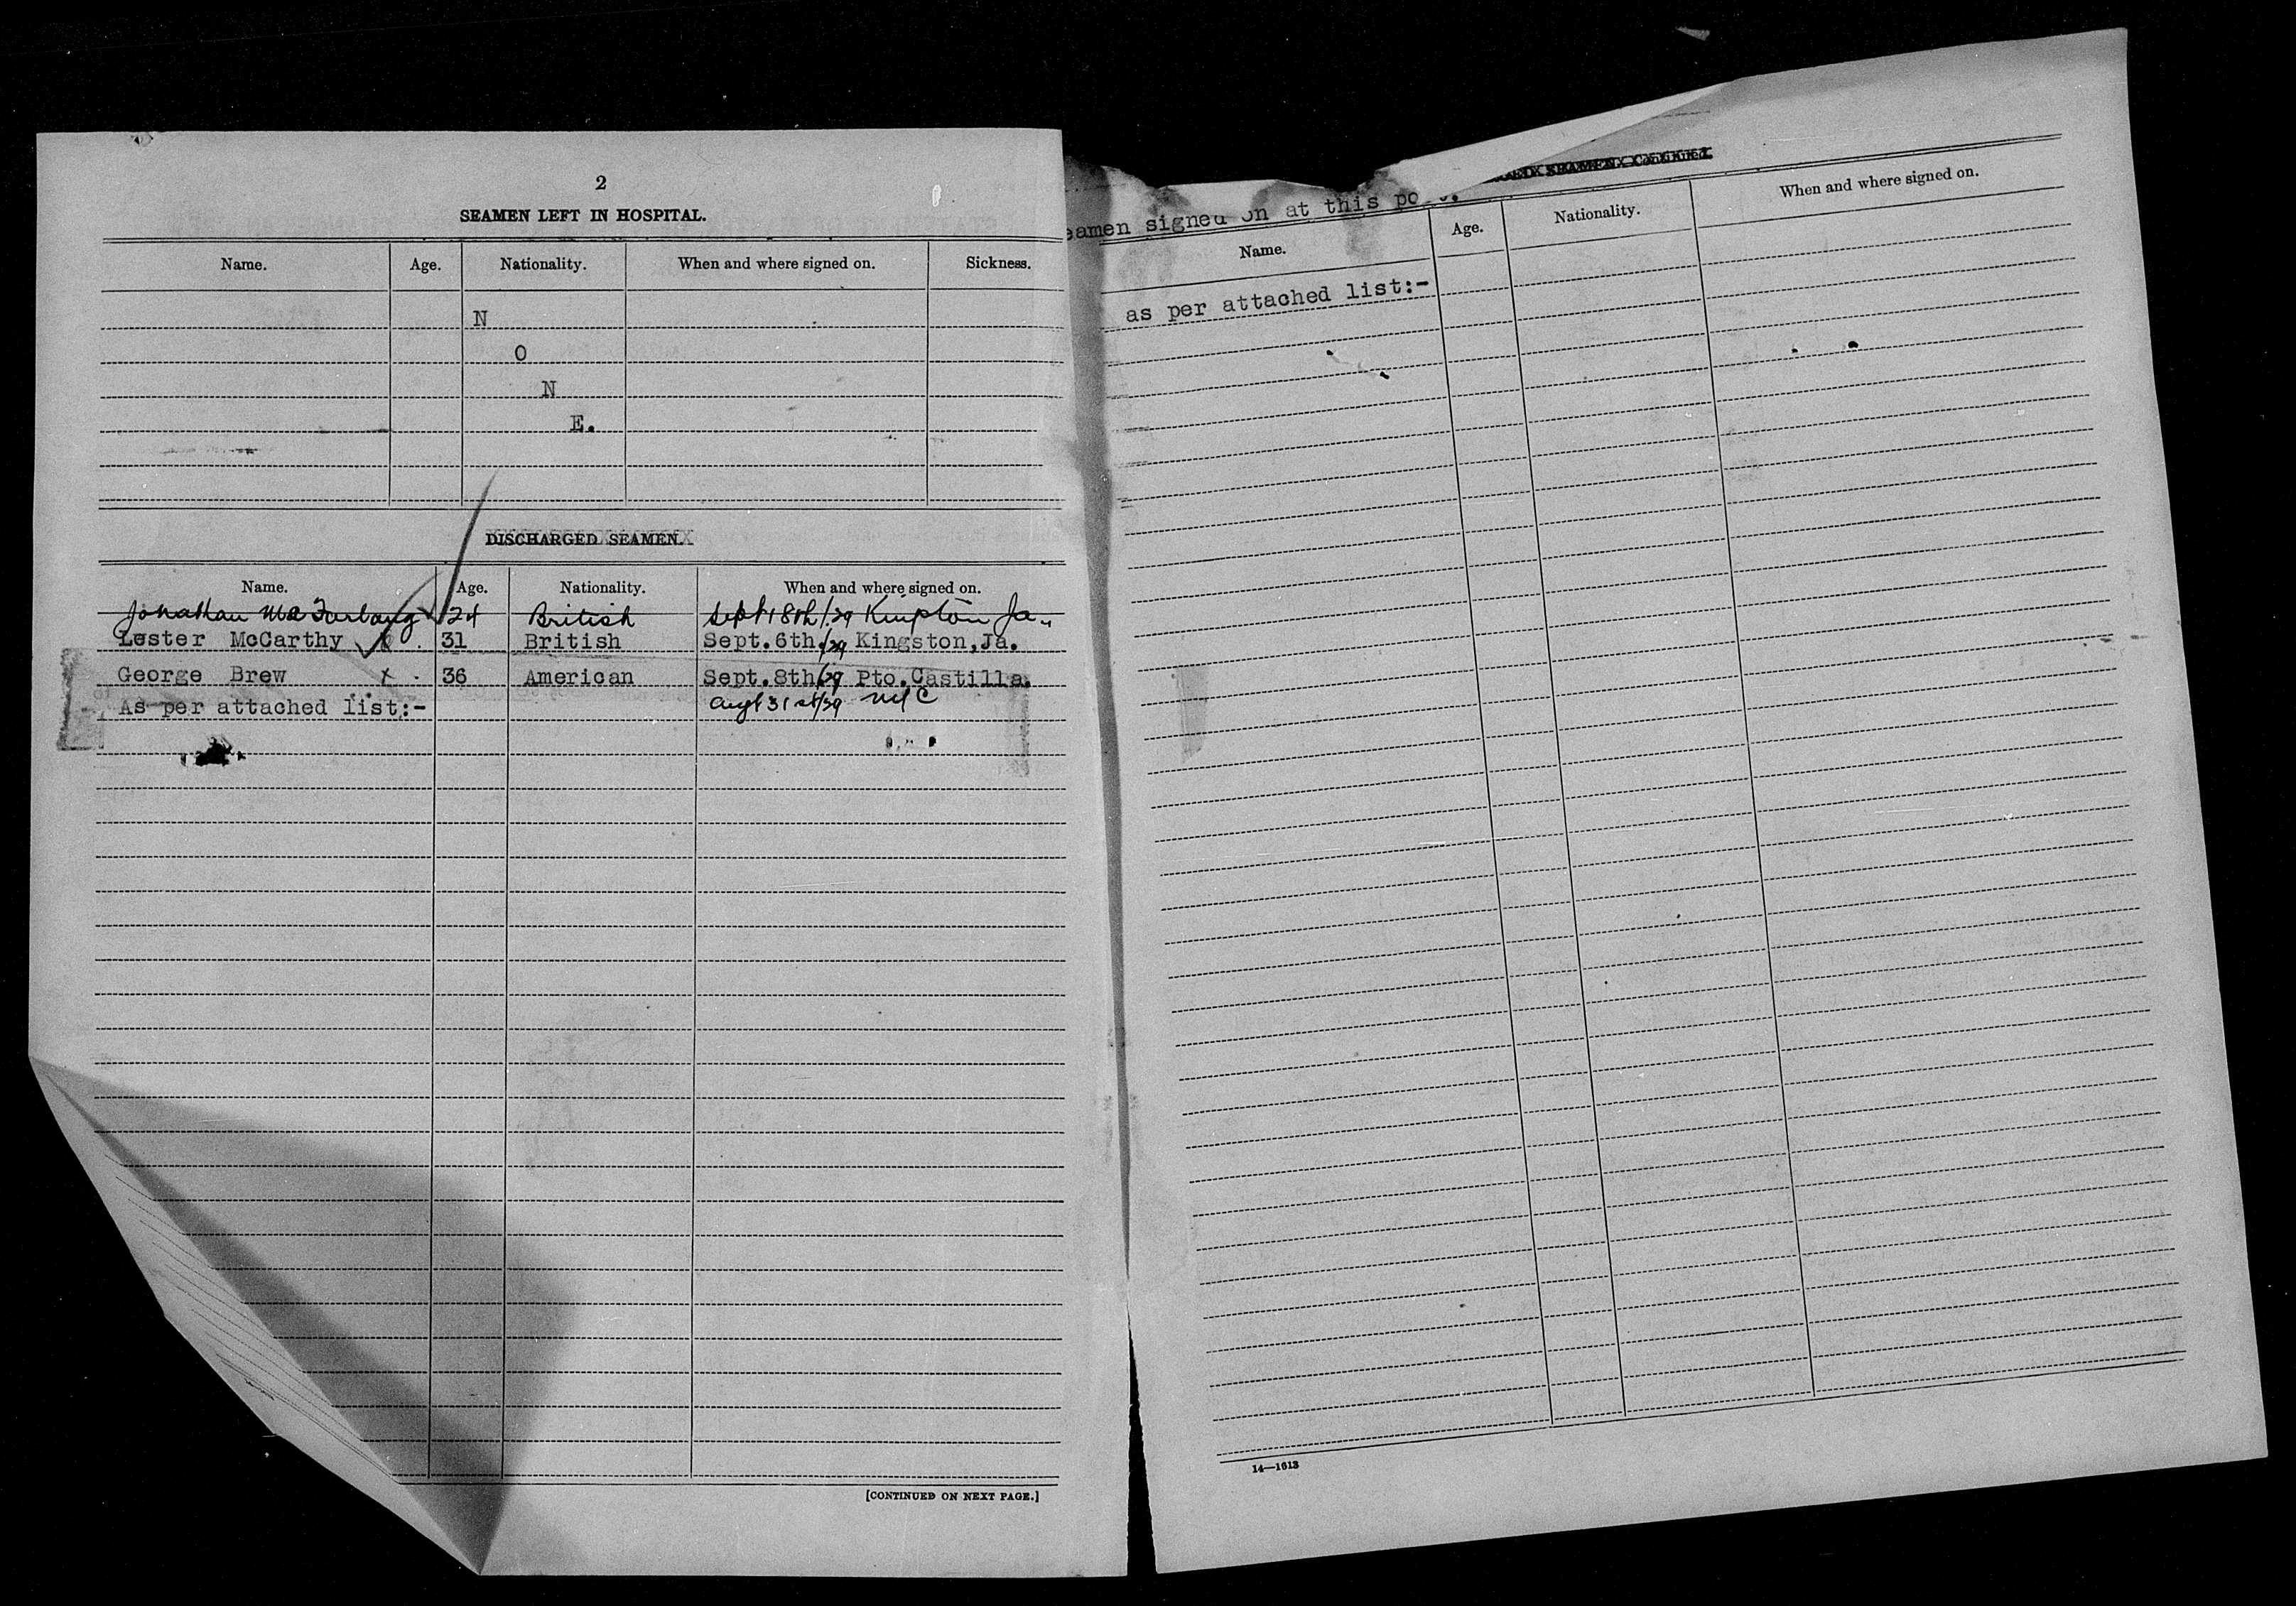 2
SEAMEN LEFT IN HOSPITAL.
Name. Age. Nationality. When and where signed on. Sickness.
N
O
N
E.
DISCHARGED SEAMEN.
Name. Age. Nationality. When and where signed on.
Jonathan 24 British Sept 18th/29 Ja.
Lester McCarthy 31 British Sept.6th/29 Kingston,Ja.
George Brew x 36 American Sept.8th/29 Pto.Castilla.
As per attached list:- Augt 31st/29
[CONTINUED ON NEXT PAGE.]
eamen signed on at this po
SEAMEN—Continued.
Name. Age. Nationality. When and where signed on.
as per attached list:-
14—1613